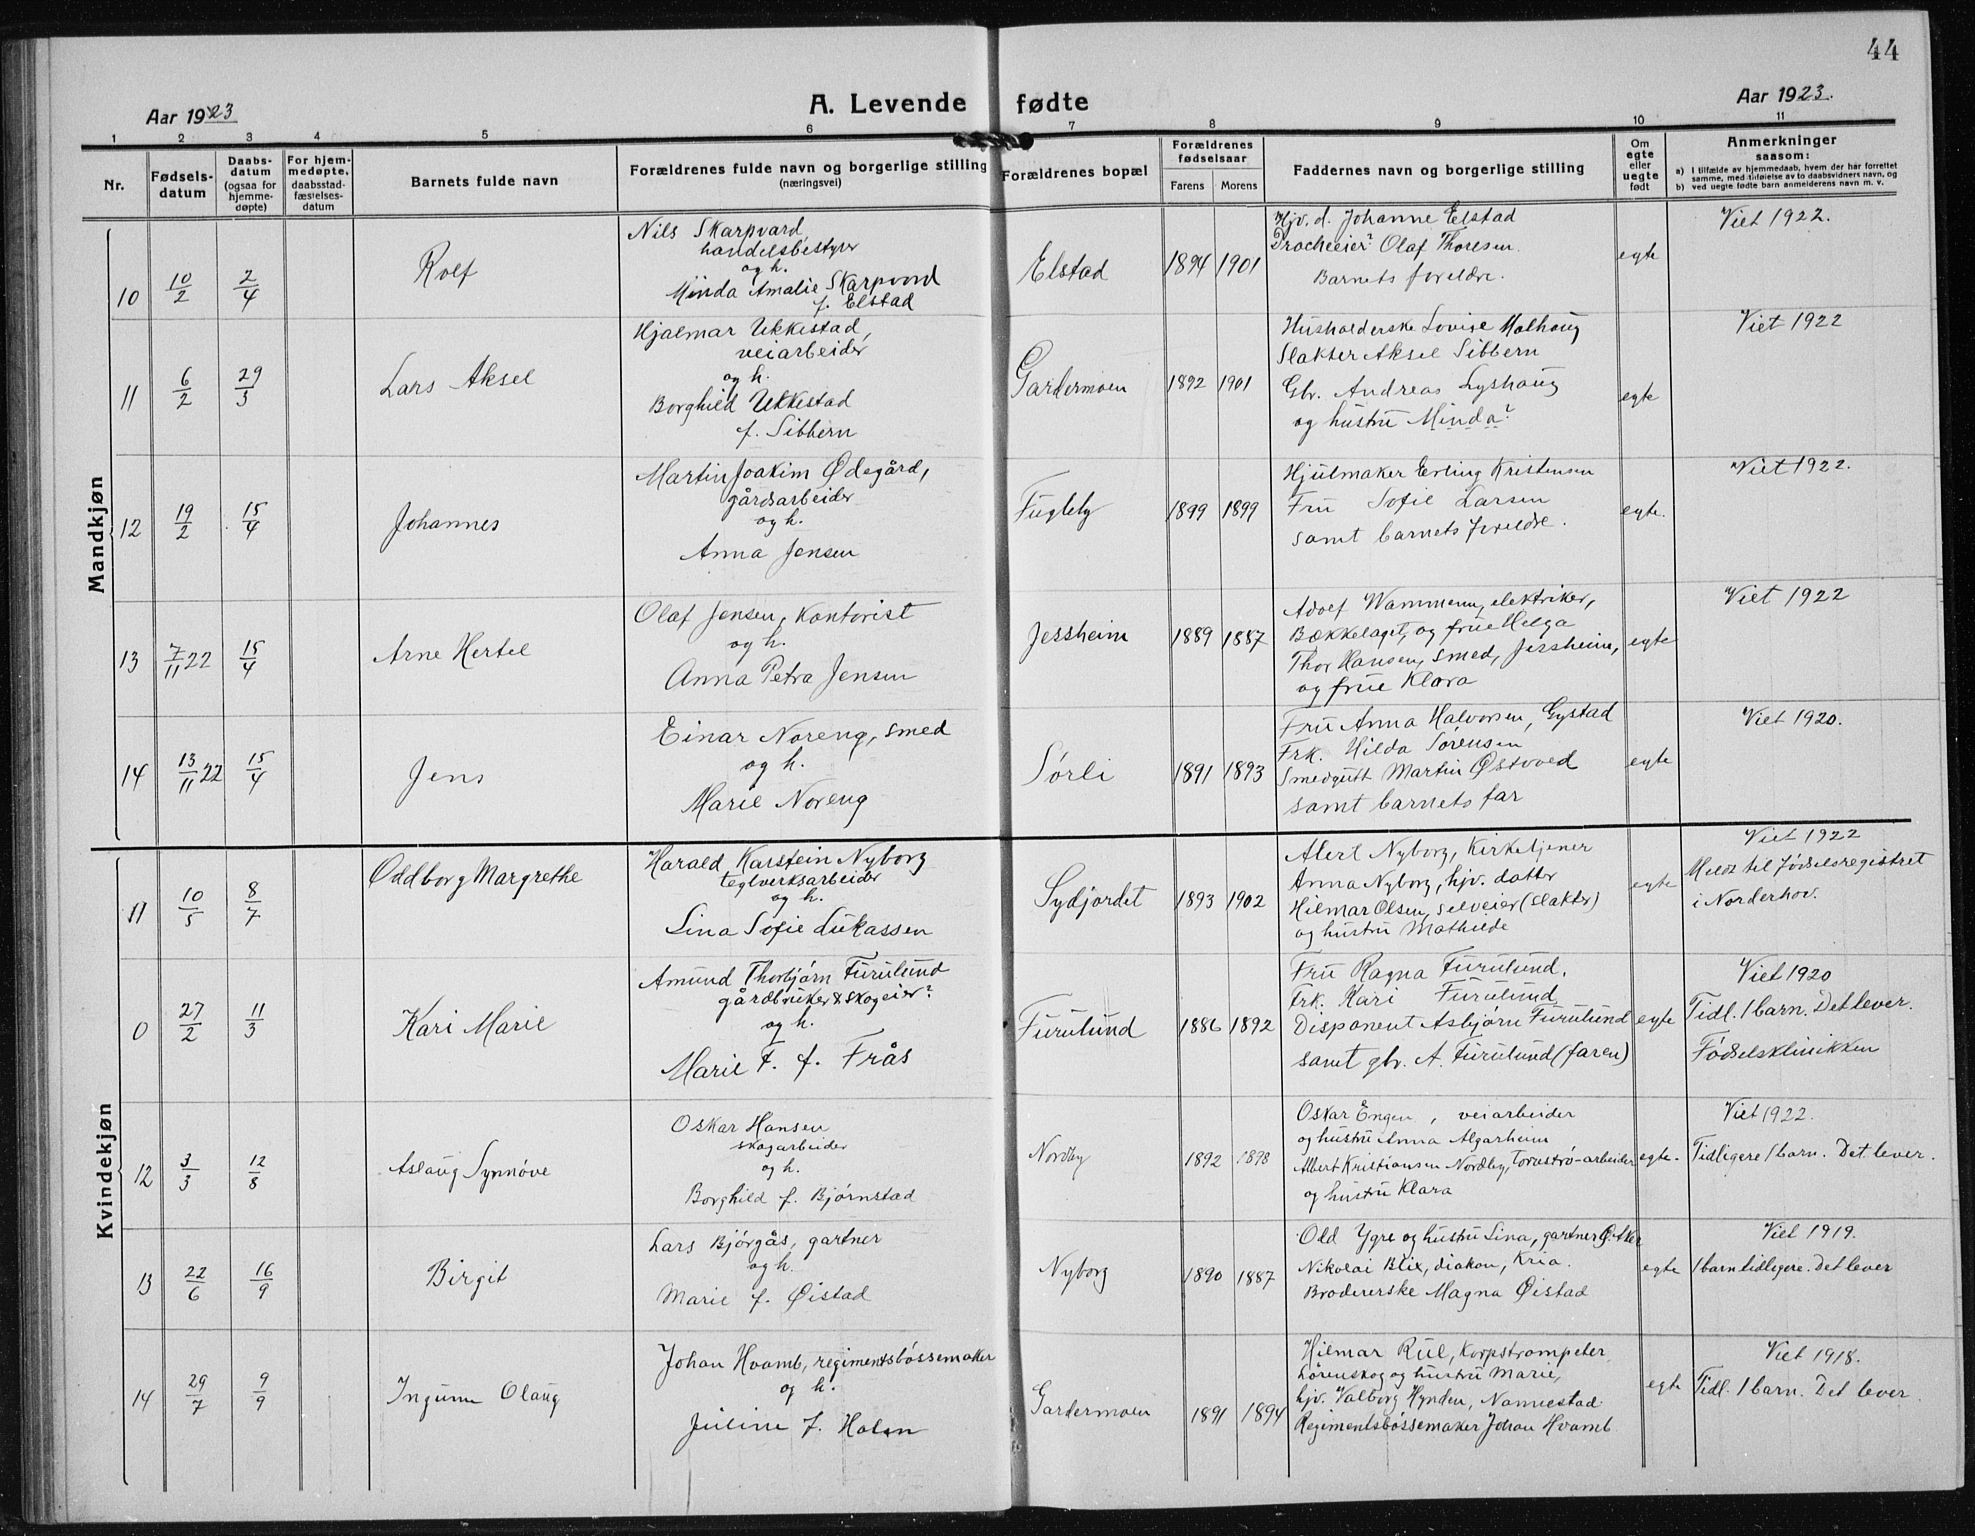 44
Aar 1923
A. Levende fødte
Aar 1923.
1 2 3 4 5 6 7 8 9 10 11
Nr.
Fødsels-
datum
Daabs-
datum
(ogsaa for
hjemme-
døpte)
For hjem-
medøpte,
daabsstad-
fæstelses-
datum
Barnets fulde navn
Forældrenes fulde navn og borgerlige stilling
(næringsvei)
Forældrenes bopæl
Forældrenes
fødselsaar
Farens Morens
Faddernes navn og borgerlige stilling
Om
egte
eller
uegte
født
Anmerkninger
saasom:
a) I tilfælde av hjemmedaab, hvem der har forrettet
samme, med tilføielse av to daabsvidners navn, og
b) ved uegte fødte barn anmelderens navn m. v.
Mandkjøn
10 10/2 2/4
Rolf
Nils Skarpvord,
handelsbestyrer
og h.
Minda Amalie Skarpvord
f. Elstad
Elstad
1894 1901
Hjv. d. Johanne Elstad
Olaf Thoresen.
Barnets foreldre.
egte
Viet 1922.
11 6/2 29/3
Lars Aksel
Hjalmar Ukkestad,
veiarbeider
og h.
Borghild Ukkestad
f. Sibbern
Gardermoen
1892 1901
Husholderske Lovise Molhaug
Slakter Aksel Sibbern
Gbr. Andreas Lyshaug
og hustru Minda?
egte
Viet 1922
12 19/2 15/4
Johannes
Martin Joakim Ødegård,
gårdsarbeider
og h.
Anna Jensen
Fugleby
1899 1899
Hjulmaker Erling Kristensen
Fru Sofie Larsen
samt barnets foreldre.
egte.
Viet 1922.
13 7/11 22 15/4
Arne Hertel
Olaf Jensen, kontorist
og h.
Anna Petra Jensen
Jessheim
1889 1887
Adolf Wammem, elektriker,
Bækkelaget, og frue Helga
Thor Hansen, smed, Jessheim,
og frue Klara
egte
Viet 1922
14 13/11 22 15/4
Jens
Einar Noreng, smed
og h.
Marie Noreng
Sørli
1891 1893
Fru Anna Halvorsen, Gystad
Frk. Hilda Sørensen
Smedgutt Martin Østvoed
samt barnets far
egte
Viet 1920.
Kvindekjøn
11 10/5 8/7
Oddborg Margrethe
Harald Karstein Nyborg
teglverksarbeider
og h.
Lina Sofie Lukassen
Sydjordet
1893 1902
Alert Nyborg, kirketjener
Anna Nyborg, hjv. datter
Hilmar Olsen, selveier (slakter)
og hustru Mathilde
egte
Viet 1922
Meldt til Fødselsregistret
i Norderhov.
0 27/2 11/3
Kari Marie
Amund Thorbjørn Furulund
gårdbruker & skogeier?
og h.
Marie F. f. Frås
Furulund
1886 1892
Fru Ragna Furulund,
Frk. Kari Furulund
Disponent Asbjørn Furulund
samt gbr. A. Furulund (faren)
egte
Viet 1920
Tidl. 1 barn. Det lever.
Fødselsklinikken
12 3/3 12/8
Aslaug Synnøve
Oskar Hansen
skogarbeider
og h.
Borghild f. Bjørnstad
Nordby
1892 1898
Oskar Engen, veiarbeider
og hustru Anna Algarheim
Albert Kristiansen Nordby, torvstrø-arbeider
og hustru Klara
egte.
Viet 1922.
Tidligere 1 barn. Det lever.
13 22/6 16/9
Birgit
Lars Bjørgås, gartner
og h.
Marie f. Øistad
Nyborg
1890 1887
Odd Ygre og hustru Lina, gartner
Nikolai Blix, diakon, Kria.
Brodererske Magna Øistad
egte
Viet 1919.
1 barn tidligere. Det lever
14 29/7 9/9
Ingunn Olaug
Johan Hvamb, regimentsbøssemaker
og h.
Juline f. Holm
Gardermoen
1891 1894
Hilmar Rul, korpstrompeter,
Lørenskog og hustru Marie,
hjv. Valborg Hynden, Nannestad
Regimentsbøssemaker Johan Hvamb
egte
Viet 1918.
Tidl. 1 barn. Det lever.